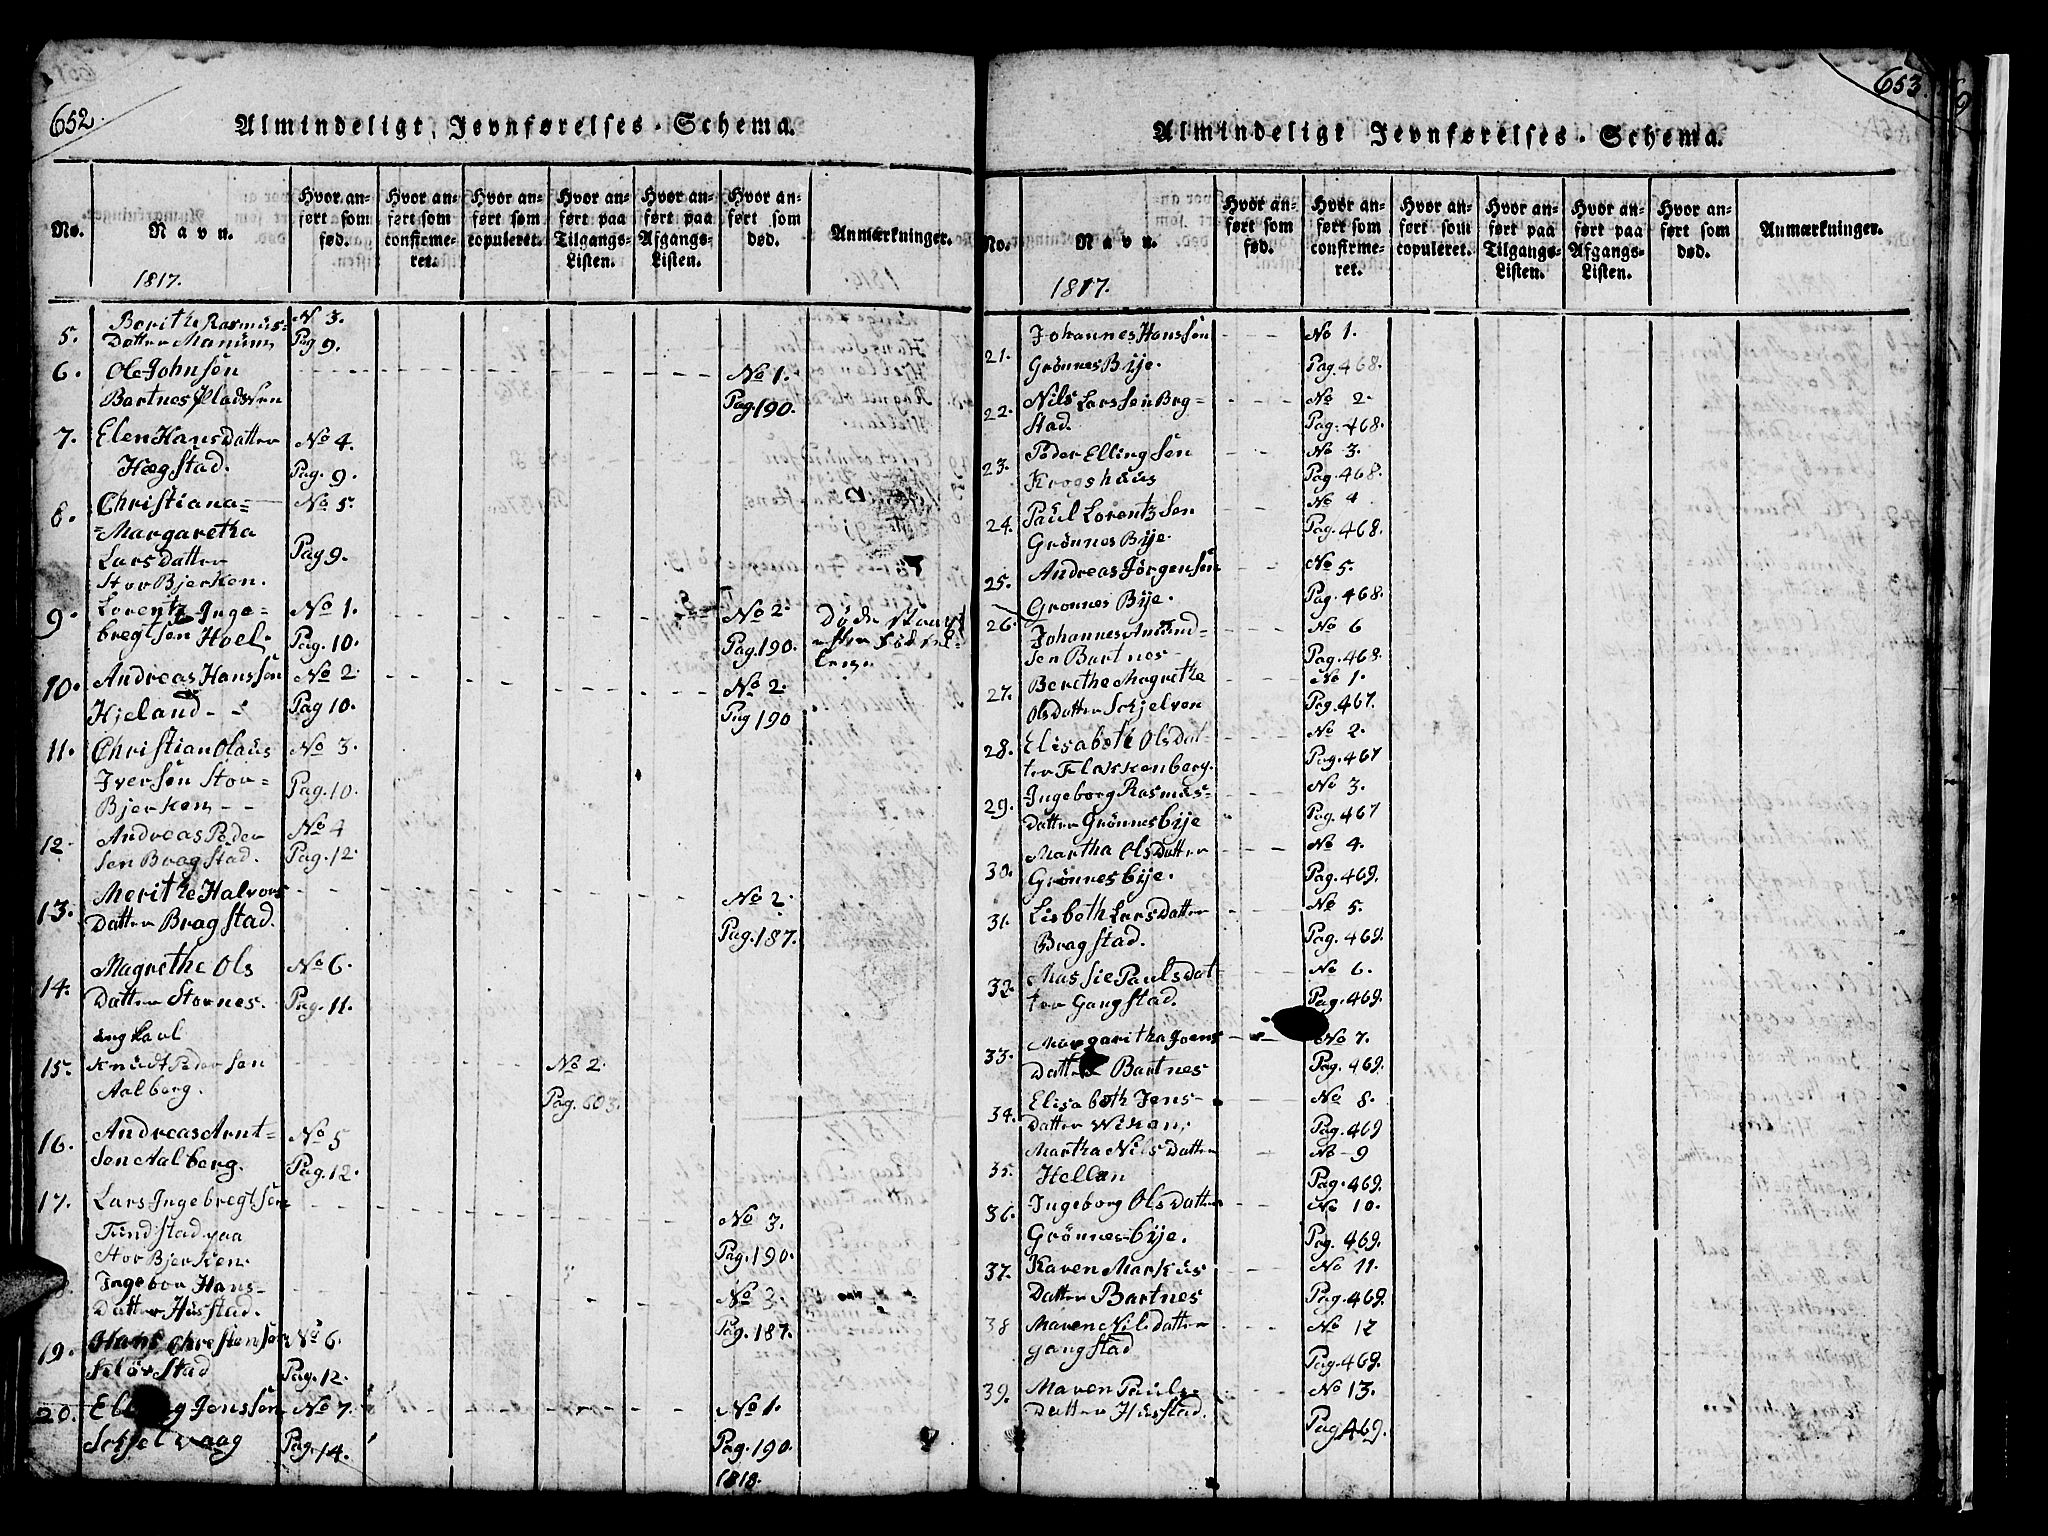 652.
Almindeligt Jevnførelses-Schema.
No.
Navn.
Hvor anført som fød.
Hvor anført som confirmeret.
Hvor anført som copuleret.
Hvor anført paa Tilgangs-Listen.
Hvor anført paa Afgangs-Listen.
Hvor anført som død.
Anmærkninger.
1817.
5. Berithe Rasmus= N 3.
Datter Manum Pag 9.
6. Ole Johnsen No 1.
Bartnes Pladsen Pag. 190.
7. Elen Hans Datter No 4.
Hægstad. Pag. 9.
8. Christiana= No 5.
=Margaretha
Lars Datter Pag 9.
Stor Bjerken.
9. Lorentz Inge= No 1. No 2. Døde strax
bregtsen Hoel. Pag. 10. Pag. 190.
10. Andreas Hanssen No 2. No 2.
Hjeland Pag 10. Pag 190
11. Christian Olaus No 3.
Iversen Stor= Pag. 10.
Bjerken
12. Andreas Peder No 4
sen Bragstad. Pag. 12.
13. Merithe Halvors No 2.
Datter Bragstad. Pag. 187.
14. Magrethe Ols No 6.
Datter Stornes. Pag. 11.
15. Knudt Pedersen No 2.
Aalberg. Pag. 603.
16. Andreas Arnt= No 5
sen Aalberg. Pag. 12.
17. Lars Ingebregtsen No 3.
Tundstad paa Pag. 190.
Stor Bjerken.
Ingebor Hans= No 3.
Datter Hustad. Pag. 187.
19. Hans Christensen No 6.
Kløvstad Pag. 12.
20. Jenssen No 7. No 1.
Schjelvaag Pag. 14. Pag. 190.
1818.
653.
Almindeligt Jevnførelses-Schema.
No.
Navn.
Hvor anført som fød.
Hvor anført som confirmeret.
Hvor anført som copuleret.
Hvor anført paa Tilgangs-Listen.
Hvor anført paa Afgangs-Listen.
Hvor anført som død.
Anmærkninger.
1817.
21. Johannes Hanssen No 1.
Grønnes Bÿe. Pag. 468.
22. Nils Larssen Brg= No 2.
stad. Pag. 468.
23. Peder Ellingsen No 3.
Krogshuus Pag. 468.
24. Paul Lorentzsen No 4.
Grønnes Bÿe. Pag. 468.
25. Andreas Jörgensen No 5.
Grønnes Bÿe. Pag. 468.
26. Johannes Amund= No 6
sen Bartnes Pag. 468.
27. Berethe Magrethe No 1.
Olsdatter Schjelven Pag. 467.
28. Elisabeth Olsdat= No 2.
ter Flaskenberg. Pag. 467
29. Ingeborg Rasmus= No 3.
Datter Grønnesbÿe Pag. 467
30. Martha Olsdatter No 4.
Grønnesbÿe. Pag. 469.
31. Lisbeth Larsdatter No 5.
Bragstad. Pag. 469.
32. Massie Paulsdat No 6.
ter Gangstad. Pag. 469.
33. Margaritha Joens No 7.
Datter Bartnes Pag. 469.
34. Elisabeth Jens= No 8.
Datter Wikan. Pag. 469
35. Martha Nilsdatter No 9
Hellan Pag. 469.
36. Ingeborg Olsdatter No 10.
Grønnesbÿe. Pag. 469.
37. Karen Markus No 11.
Datter Bartnes Pag. 469.
38 Maren Nilsdatter No 12
Gangstad Pag. 469.
39. Maren Pauls= No 13.
Datter Hustad. Pag. 469.